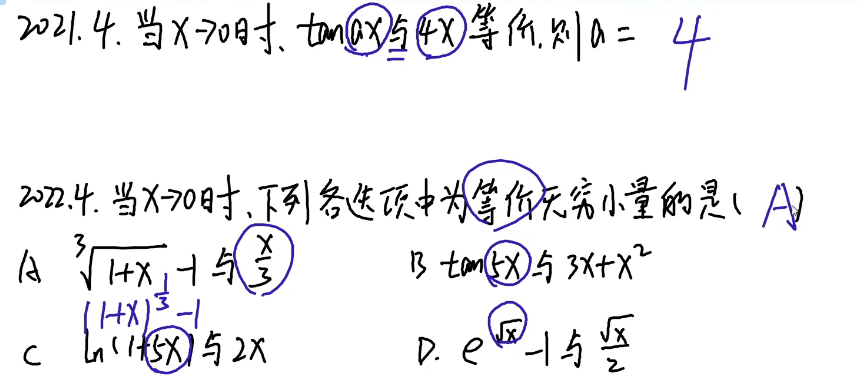 2021.4. 当x→0时、tan ax与4x等价,则a= 4
2022.4. 当x→0时、下列各选项中为等价无穷小量的是( A )
A ∛(1+x) -1 与 x/3
B tan5x与 3x+x²
(1+x)^(1/3) -1
C ln(1+5x)与2x
D. e^√x -1与 √x/2